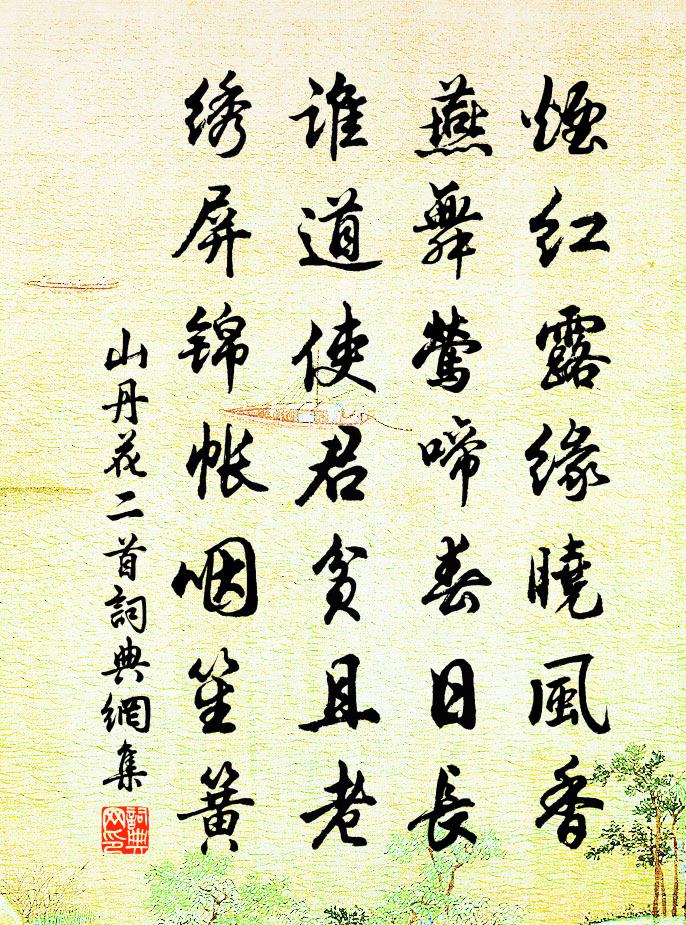 煙紅露緣曉風香
燕舞鶯啼春日長
誰道使君貧且老
綉屏錦帳咽笙簧
山丹花二首詞典網集
詞典网印